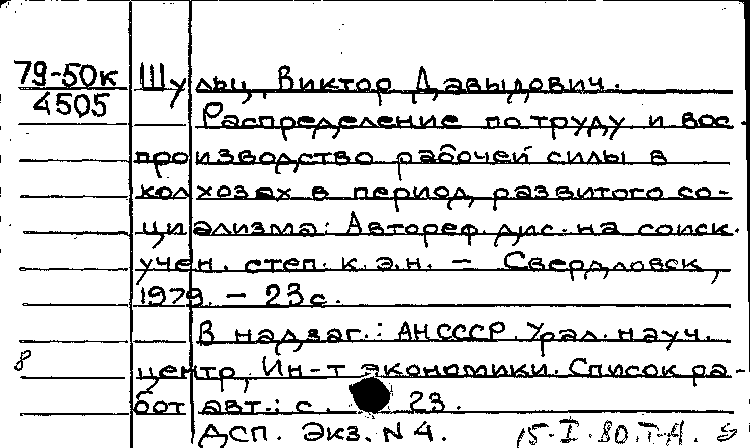 79-50к
4505
Шульц, Виктор Давыдович.
Распределение по труду и вос-
производство рабочей силы в
колхозах в период развитого со-
циализма: Автореф. дис. на соиск.
учен. степ. к.э.н. — Свердловск,
1979. — 23 с.
В надзаг.: АН СССР. Урал. науч.
8
центр, Ин-т экономики. Список ра-
бот авт.: с. 23.
ДСП. Экз. N 4.
15-I-80.